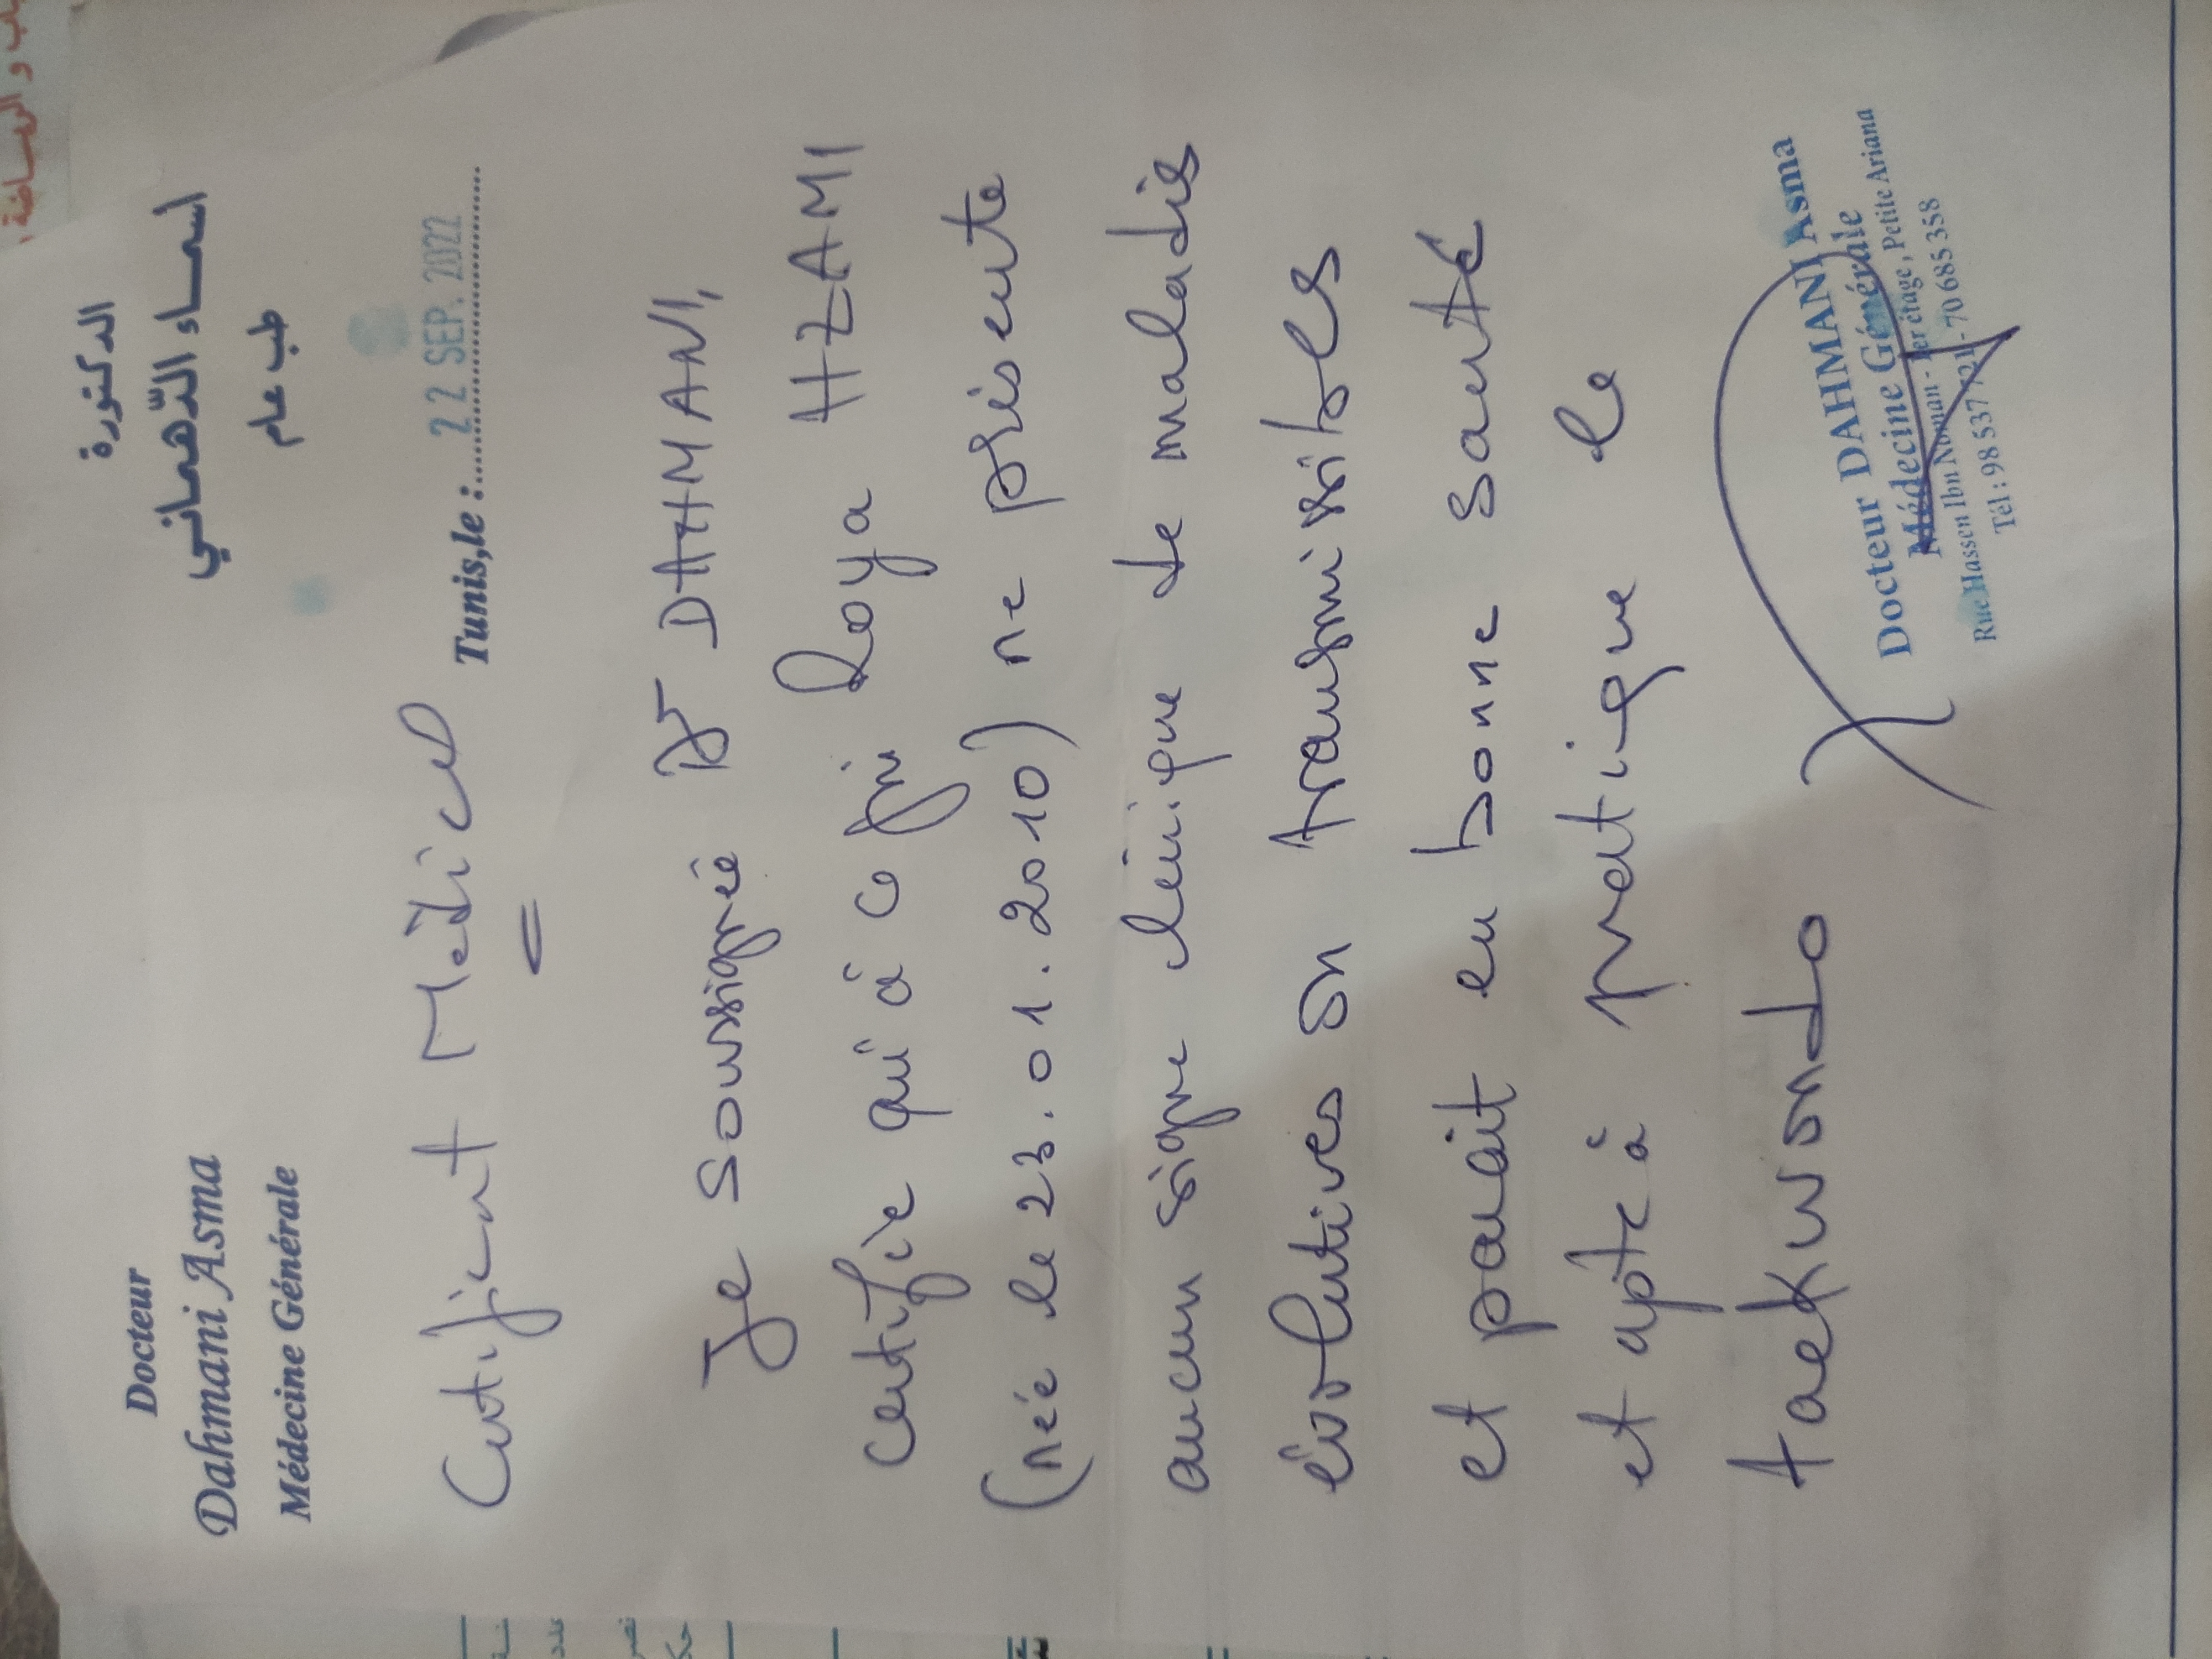 Docteur
Dahmani Asma
Médecine Générale
الدكتورة
اسماء الدّهماني
طب عام
Certificat Médical
Tunis,le : 22 SEP. 2022
Je soussignée Dr DAHMANI,
certifie qu'à ce jour Roya HZAMI
(née le 23.01.2010) ne présente
aucun signe clinique de maladies
évolutives ou transmissibles
et parait en bonne santé
et apte à pratique le
taekwondo
Docteur DAHMANI Asma
Médecine Générale
Rue Hassen Ibn Nooman - 1er étage, Petite Ariana
Tél : 98 537 721 - 70 685 358